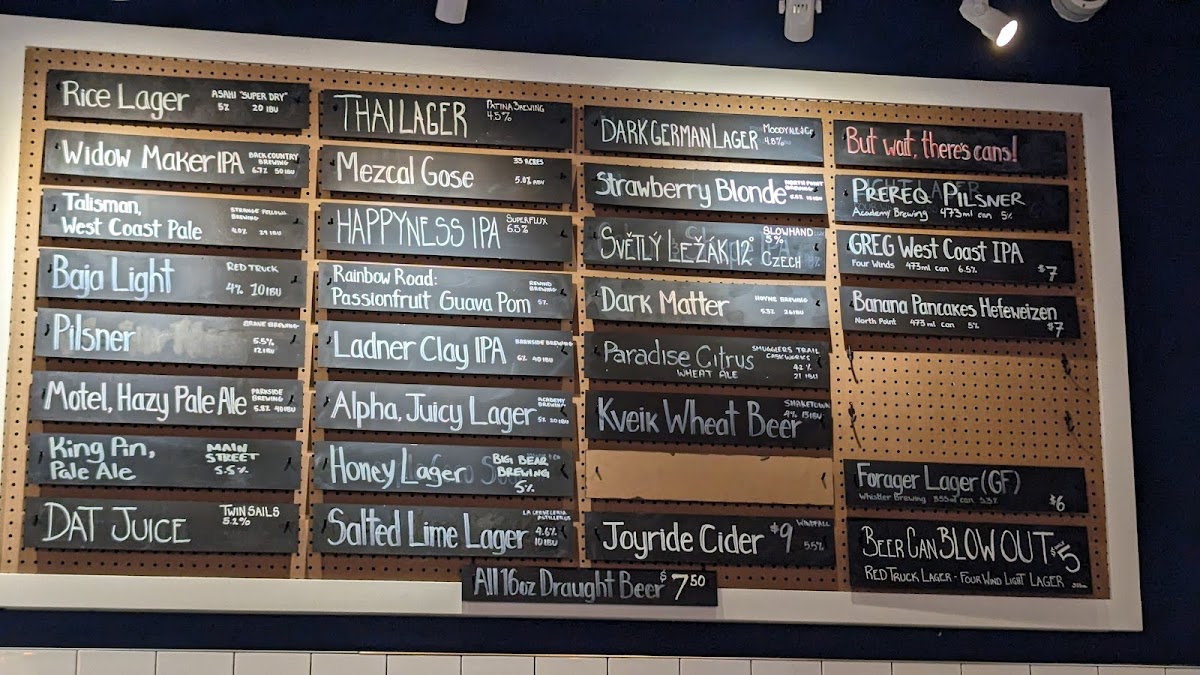 Rice Lager ASAHI "SUPER DRY"
5% 20 IBU
Widow Maker IPA BACK COUNTRY
BREWING
6.7% 50 IBU
Talisman, STRANGE FELLOWS
West Coast Pale BREWING
Baja Light RED TRUCK
4% 10 IBU
Pilsner BRAVE BREWING
5.5%
12 IBU
Motel, Hazy Pale Ale PARKSIDE
BREWING
5.8% 40 IBU
King Pin, MAIN
Pale Ale STREET
5.5%
DAT JUICE TWIN SAILS
5.2%
THAI LAGER PATINA BREWING
4.5%
Mezcal Gose 33 ACRES
5.0% ABV
HAPPYNESS IPA SUPERFLUX
6.5%
Rainbow Road: REWIND
Passionfruit Guava Pom BREWING
5%
Ladner Clay IPA BARNSIDE BREWING
6% 40 IBU
Alpha, Juicy Lager ACADEMY
BREWING
5% 20 IBU
Honey Lager BIG BEAR
BREWING
5%
Salted Lime Lager LA CERVECERIA
ASTILLEROS
4.6%
10 IBU
DARK GERMAN LAGER MOODY ALE & CO
4.8%
Strawberry Blonde NORTH POINT
BREWING
SVĚTLÝ LEŽÁK 12° SLOWHAND
5%
CZECH
Dark Matter HOYNE BREWING
5.3% 26 IBU
Paradise Citrus SMUGGLERS TRAIL
CASKWORKS
WHEAT ALE
21 IBU
Kveik Wheat Beer SMAKETOWN
4% 15 IBU
Joyride Cider $9 WINDFALL
5.5%
But wait, there's cans!
PREREQ PILSNER
Academy Brewing 473ml can 5%
GREG West Coast IPA
Four Winds 473ml can 6.5% $7
Banana Pancakes Hefeweizen
North Point 473ml can 5% $7
Forager Lager (GF)
Whistler Brewing 355ml can $6
BEER CAN BLOW OUT $5
RED TRUCK LAGER - FOUR WIND LIGHT LAGER
All 16oz Draught Beer $7.50